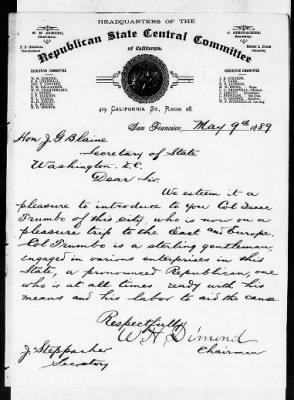 HEADQUARTERS OF THE
Republican State Central Committee
of California.
EXECUTIVE COMMITTEE
EXECUTIVE COMMITTEE
419 CALIFORNIA ST., ROOM 28.
San Francisco, May 9th 1889
Hon J. G. Blaine
Secretary of State
Washington D.C.
Dear Sir.
We esteem it a
pleasure to introduce to you Col Isaac
Trumbo of this city, who is now on a
pleasure trip to the East and Europe.
Col Trumbo is a sterling gentleman,
engaged in various enterprises in this
State, a pronounced Republican, one
who is at all times ready with his
means and his labor to aid the cause.
Respectfully
W. H. Dimond
Chairman
Secretary